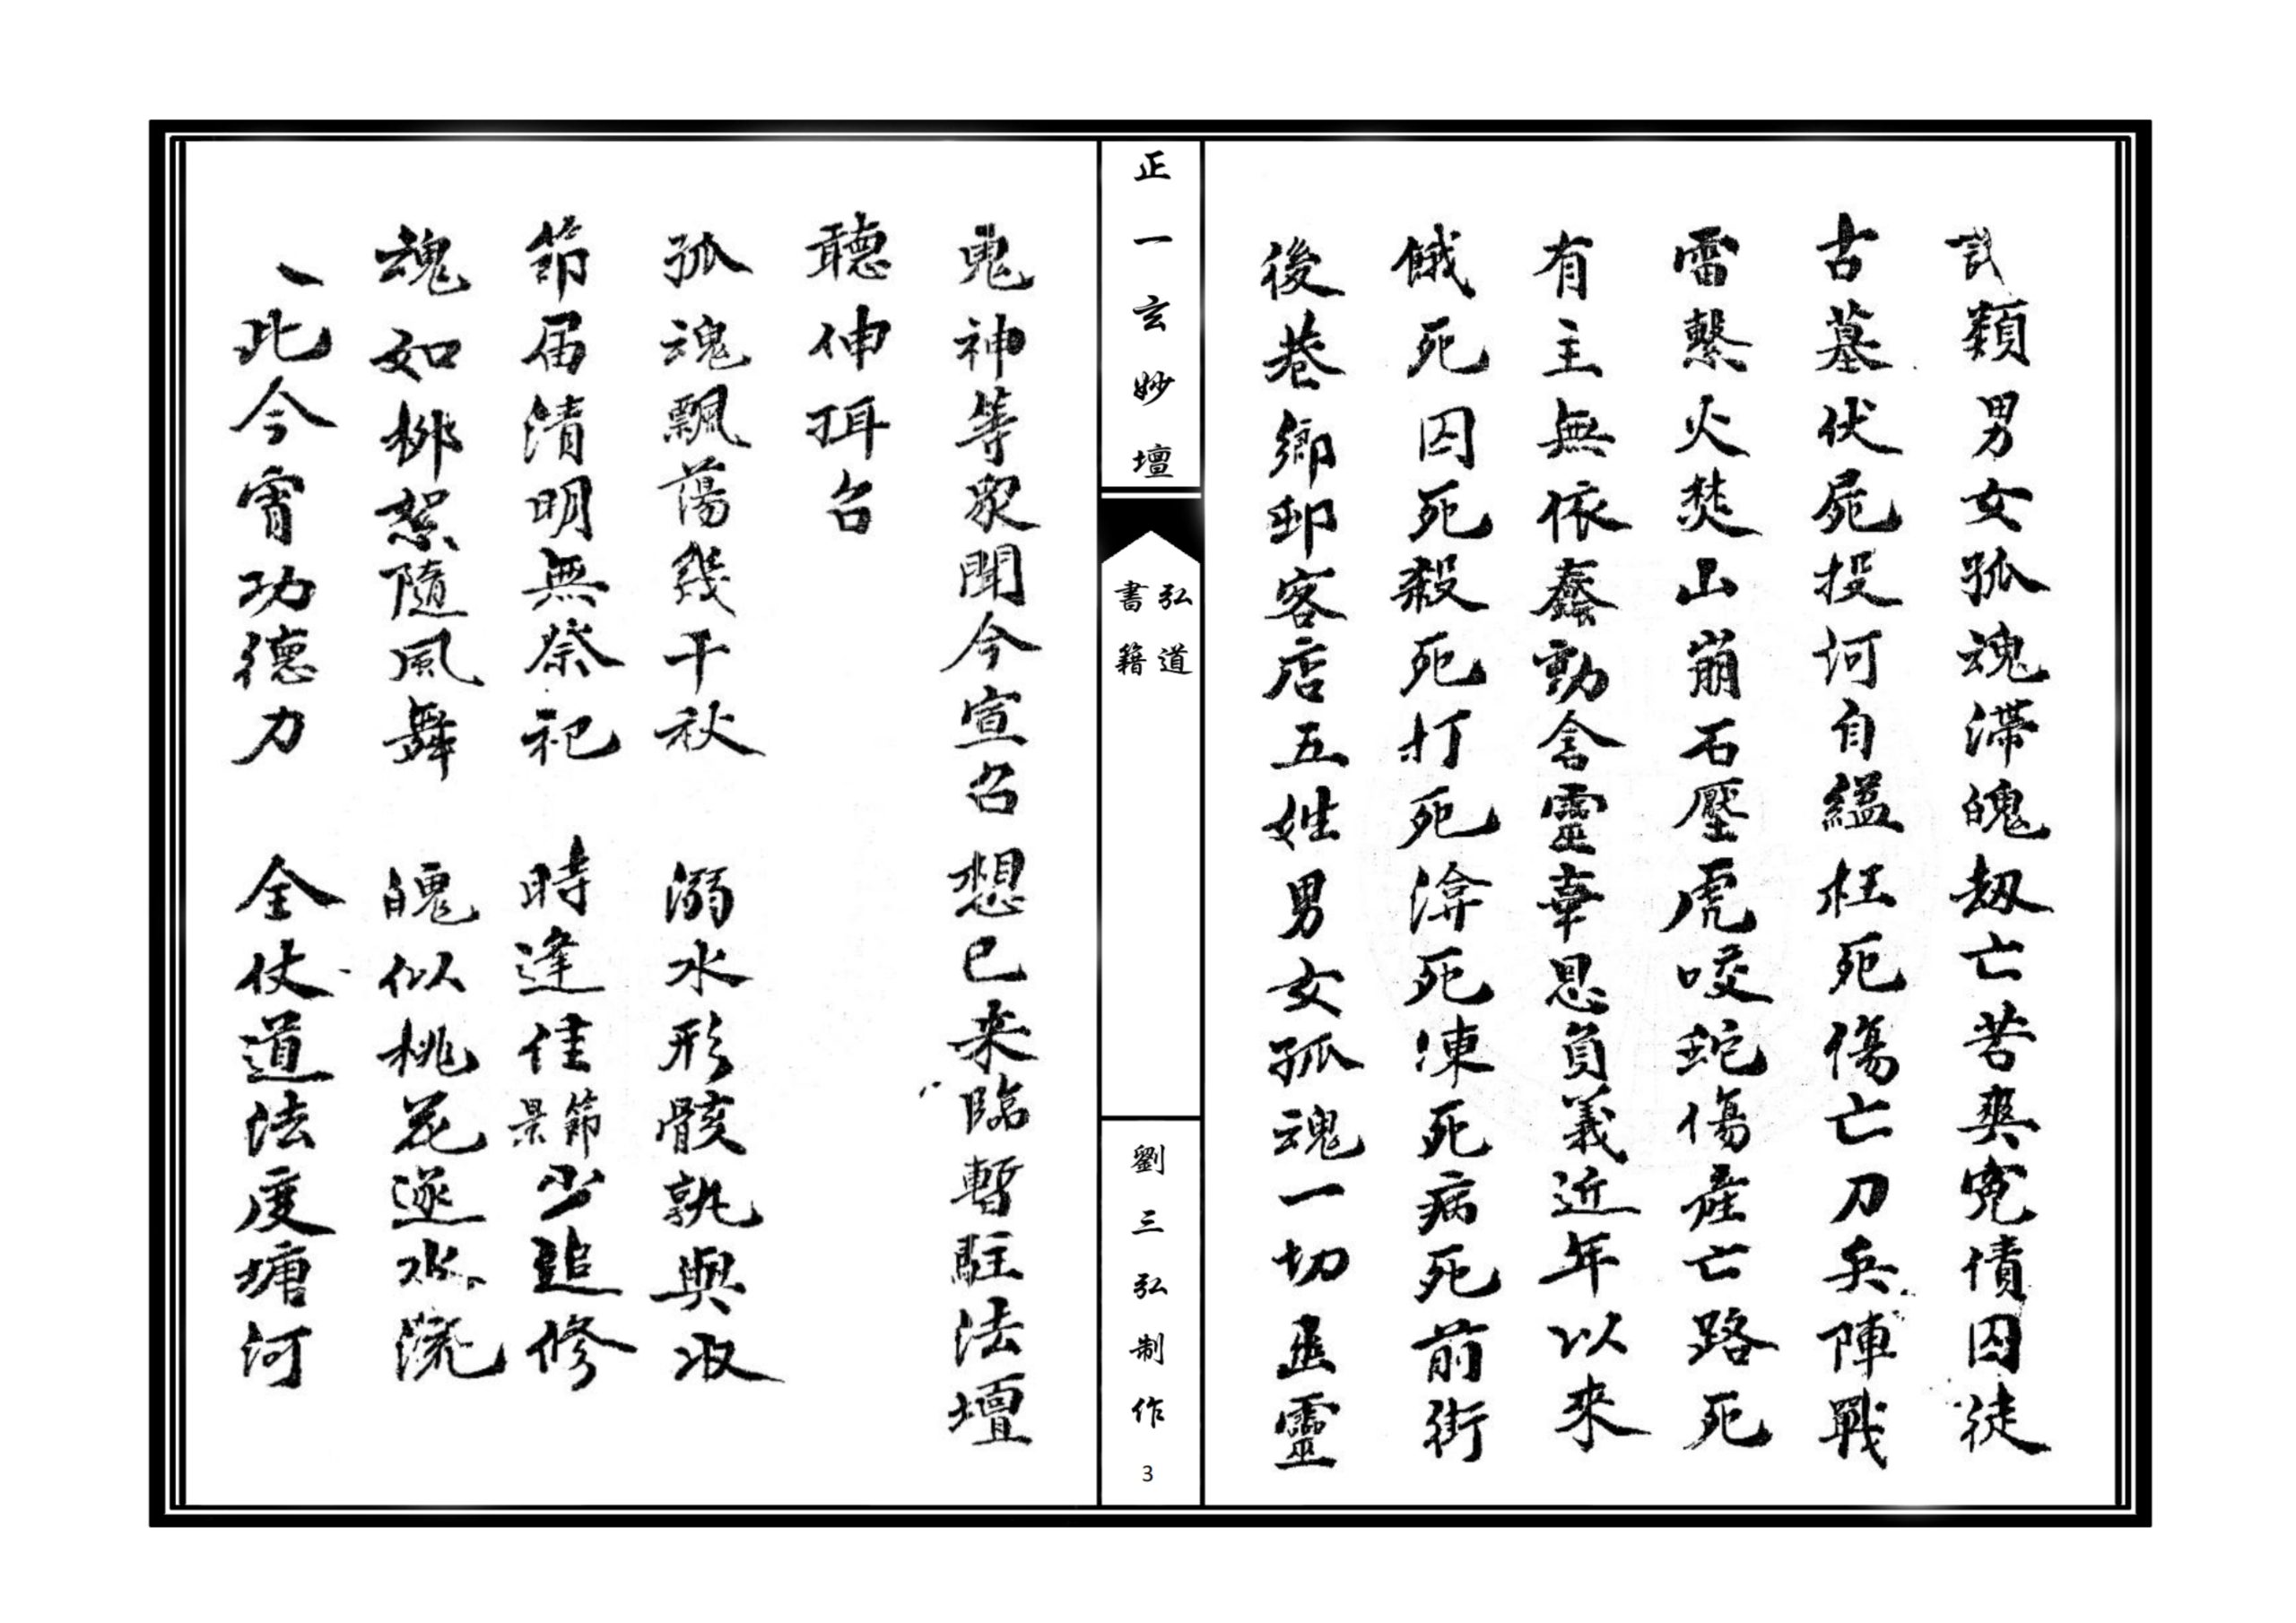 類男女孤魂滯魄劫亡苦爽寃債囚徒
古墓伏屍投河自縊枉死傷亡刀兵陣戰
雷擊火焚山崩石壓虎咬蛇傷產亡路死
有主無依蠢動含靈辜恩負義近年以來
餓死囚死殺死打死渰死凍死病死前街
後巷鄉邨客店五姓男女孤魂一切幽靈
正一玄妙壇
弘道
書籍
劉三弘制作
3
鬼神等眾聞今宣召想已来臨暫駐法壇
聽伸珥召
孤魂飄蕩幾千秋 溺水形骸孰與收
節届清明無祭祀 時逢佳節景少追修
魂如柳絮隨風舞 魄似桃花逐水流
此今宵功德力 全仗道法度塘河